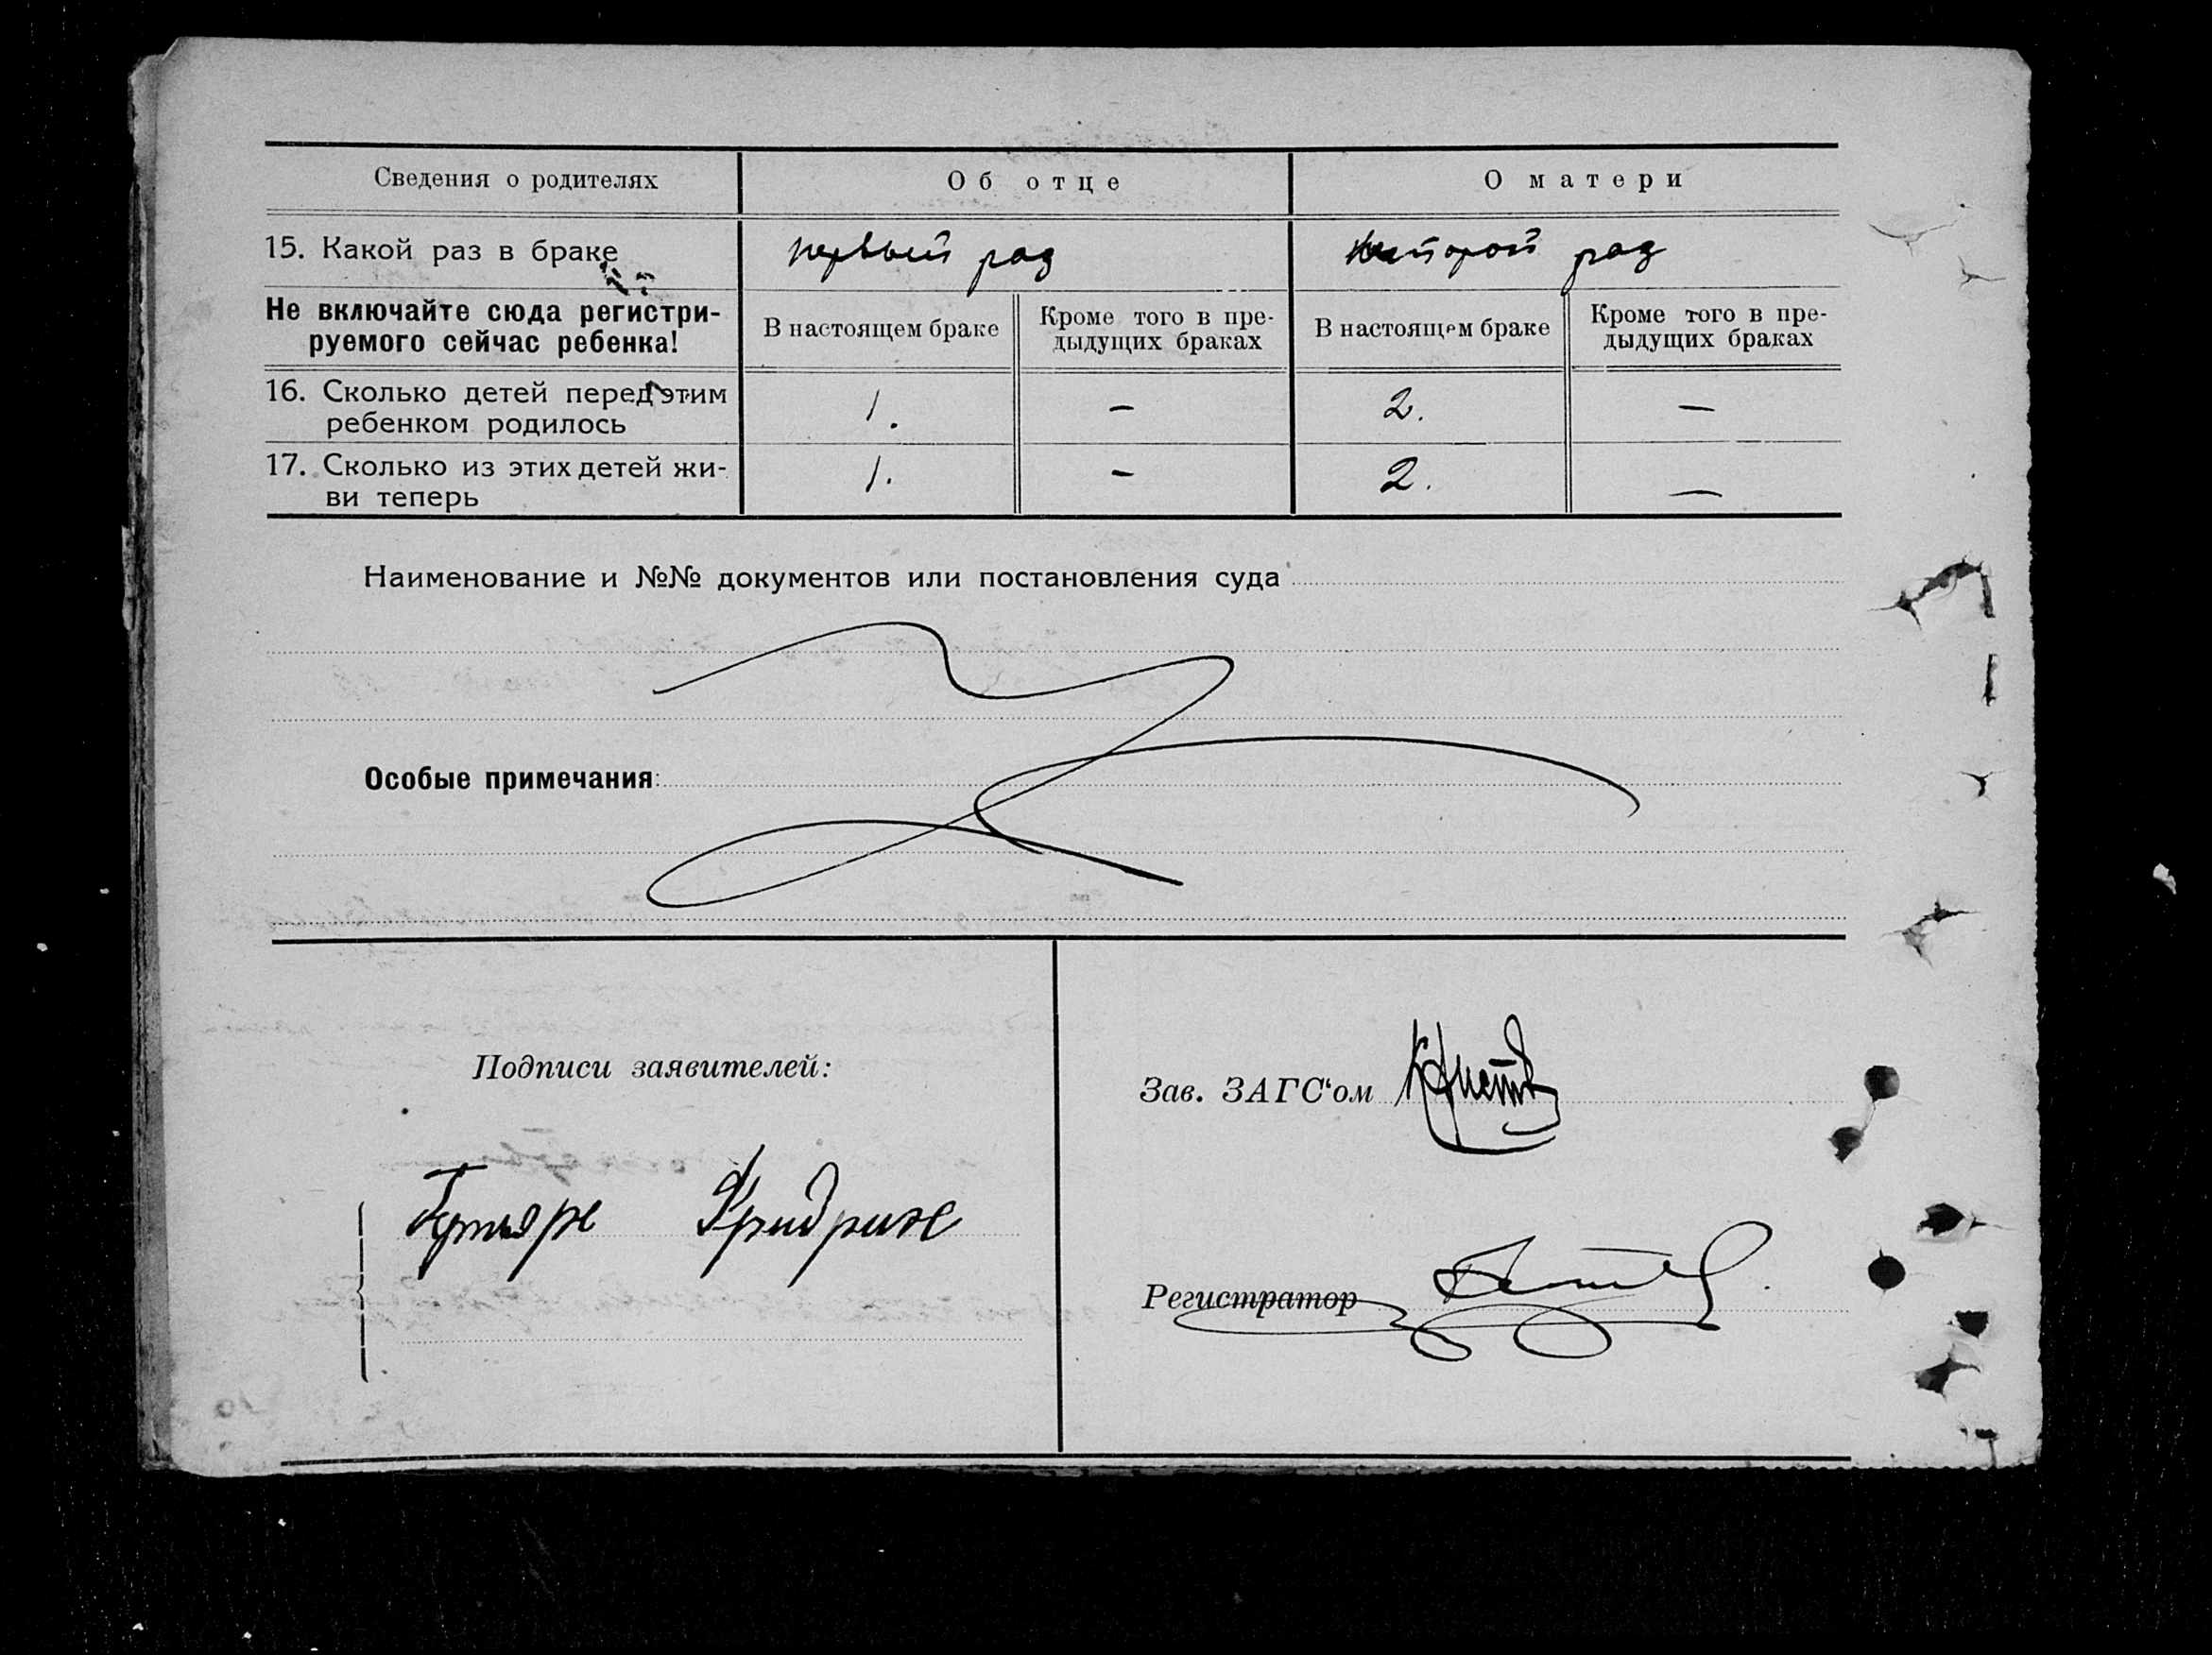 Сведения о родителях Об отце О матери
15. Какой раз в браке первый раз второй раз
Не включайте сюда регистри-
руемого сейчас ребенка!
В настоящем браке Кроме того в пре-
дыдущих браках
В настоящем браке Кроме того в пре-
дыдущих браках
16. Сколько детей перед этим
ребенком родилось 1. — 2. —
17. Сколько из этих детей жи-
ви теперь 1. — 2. —
Наименование и №№ документов или постановления суда
Особые примечания:
Подписи заявителей:
Зав. ЗАГС‘ом
Фридрих
Регистратор